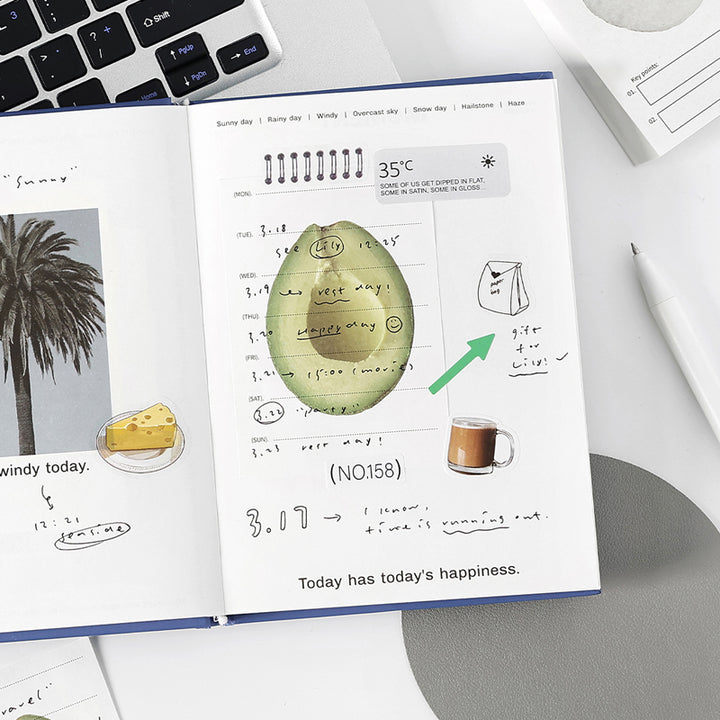 3
?
/
Shift
PgUp
PgDn
End
Home
Key points:
01.
02.
"Sunny"
windy today.
12:21
seaside
ravel"
Sunny day | Rainy day | Windy | Overcast sky | Snow day | Hailstone | Haze
35°C
SOME OF US GET DIPPED IN FLAT,
SOME IN SATIN, SOME IN GLOSS...
(MON).
(TUE). 3.18
see Lily 12:25
(WED).
3.19 rest day!
(THU).
3.20 Happy day
(FRI).
3.21 → 15:00 (movie)
(SAT).
3.22 "party"
(SUN).
3.23 rest day!
(NO.158)
paper
bag
gift
for
Lily! ✓
3.17 → I know,
time is running out.
Today has today's happiness.